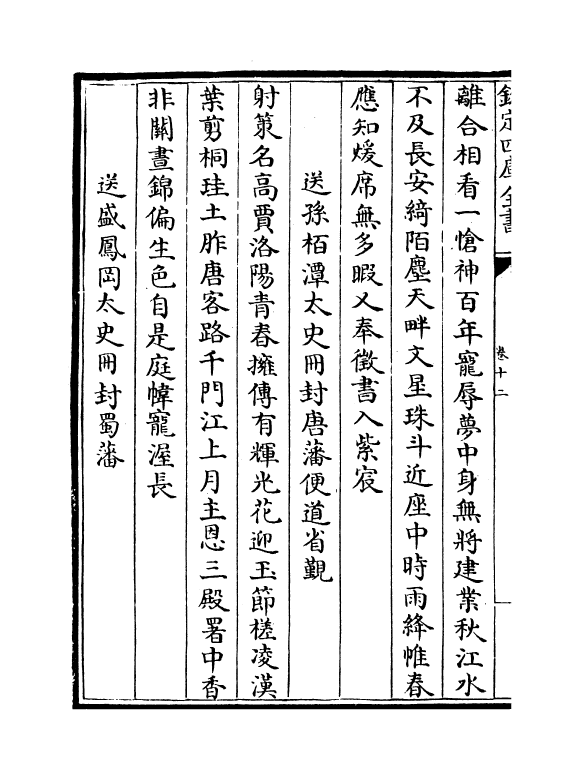 欽定四庫全書
卷十二
離合相看一愴神百年寵辱夢中身無將建業秋江水
不及長安綺陌塵天畔文星珠斗近座中時雨絳帷春
應知煖席無多暇又奉徵書入紫宸
送孫栢潭太史冊封唐藩便道省覲
射策名高賈洛陽青春擁傳有輝光花迎玉節槎凌漢
葉剪桐珪土胙唐客路千門江上月主恩三殿署中香
非關晝錦偏生色自是庭幃寵渥長
送盛鳳岡太史冊封蜀藩